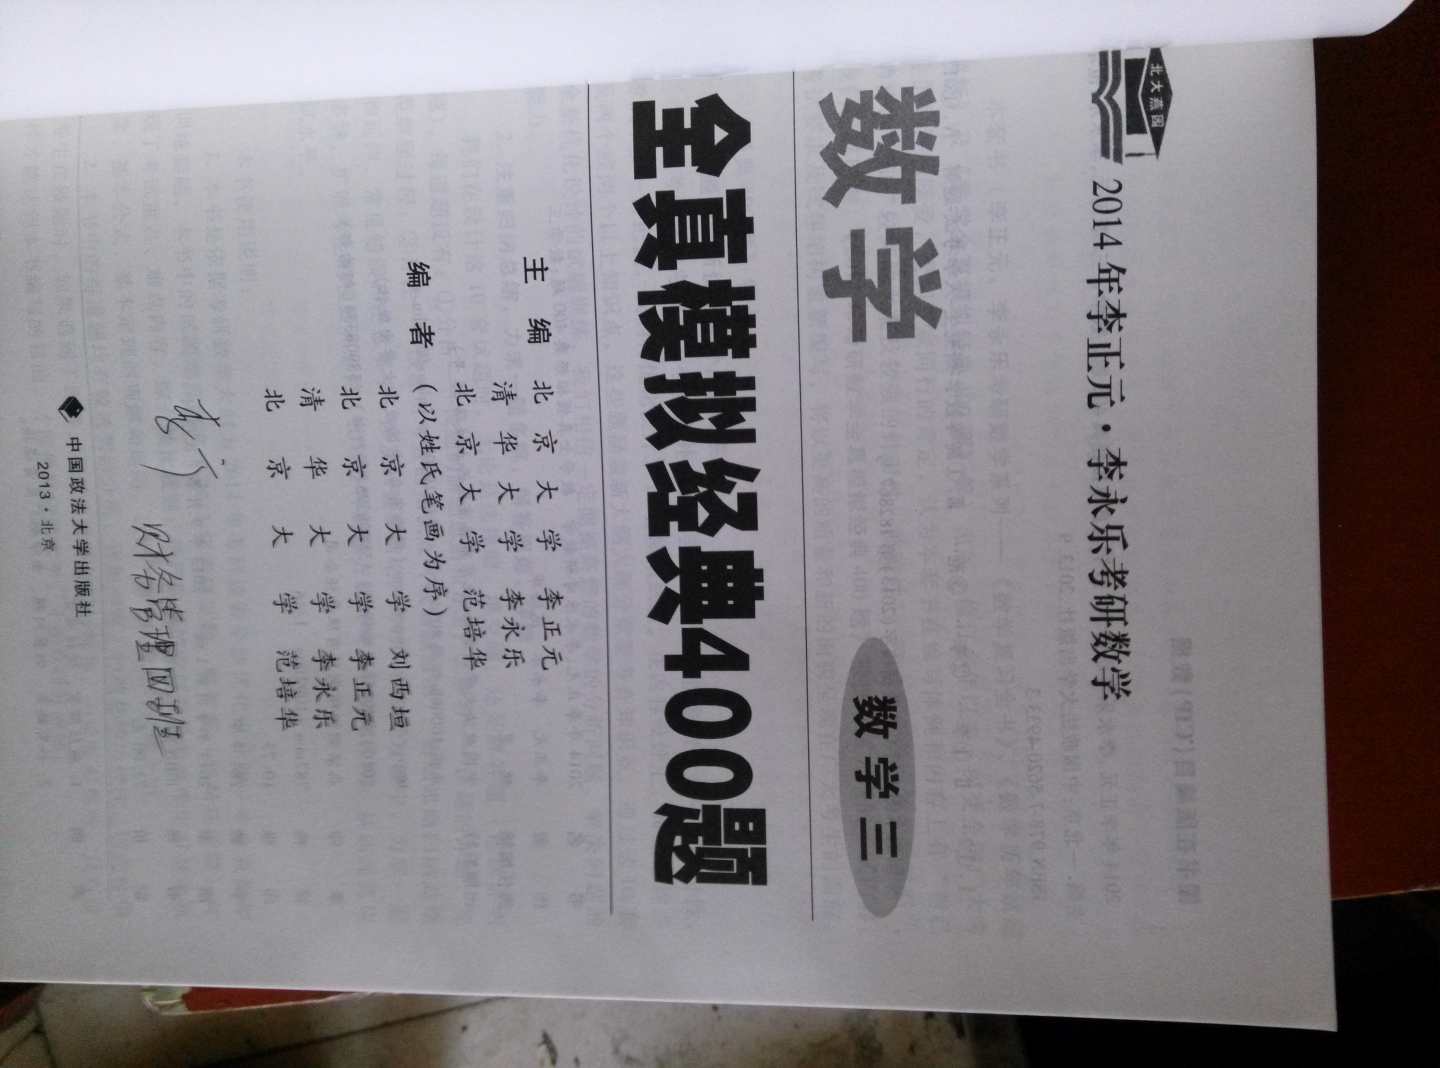 北大燕园
2014年李正元·李永乐考研数学
数学
数学三
全真模拟经典400题
主 编 北京大学 李正元
清华大学 李永乐
北京大学 范培华
编 者 （以姓氏笔画为序）
北京大学 刘西垣
北京大学 李正元
清华大学 李永乐
北京大学 范培华
财务管理四班
中国政法大学出版社
2013·北京